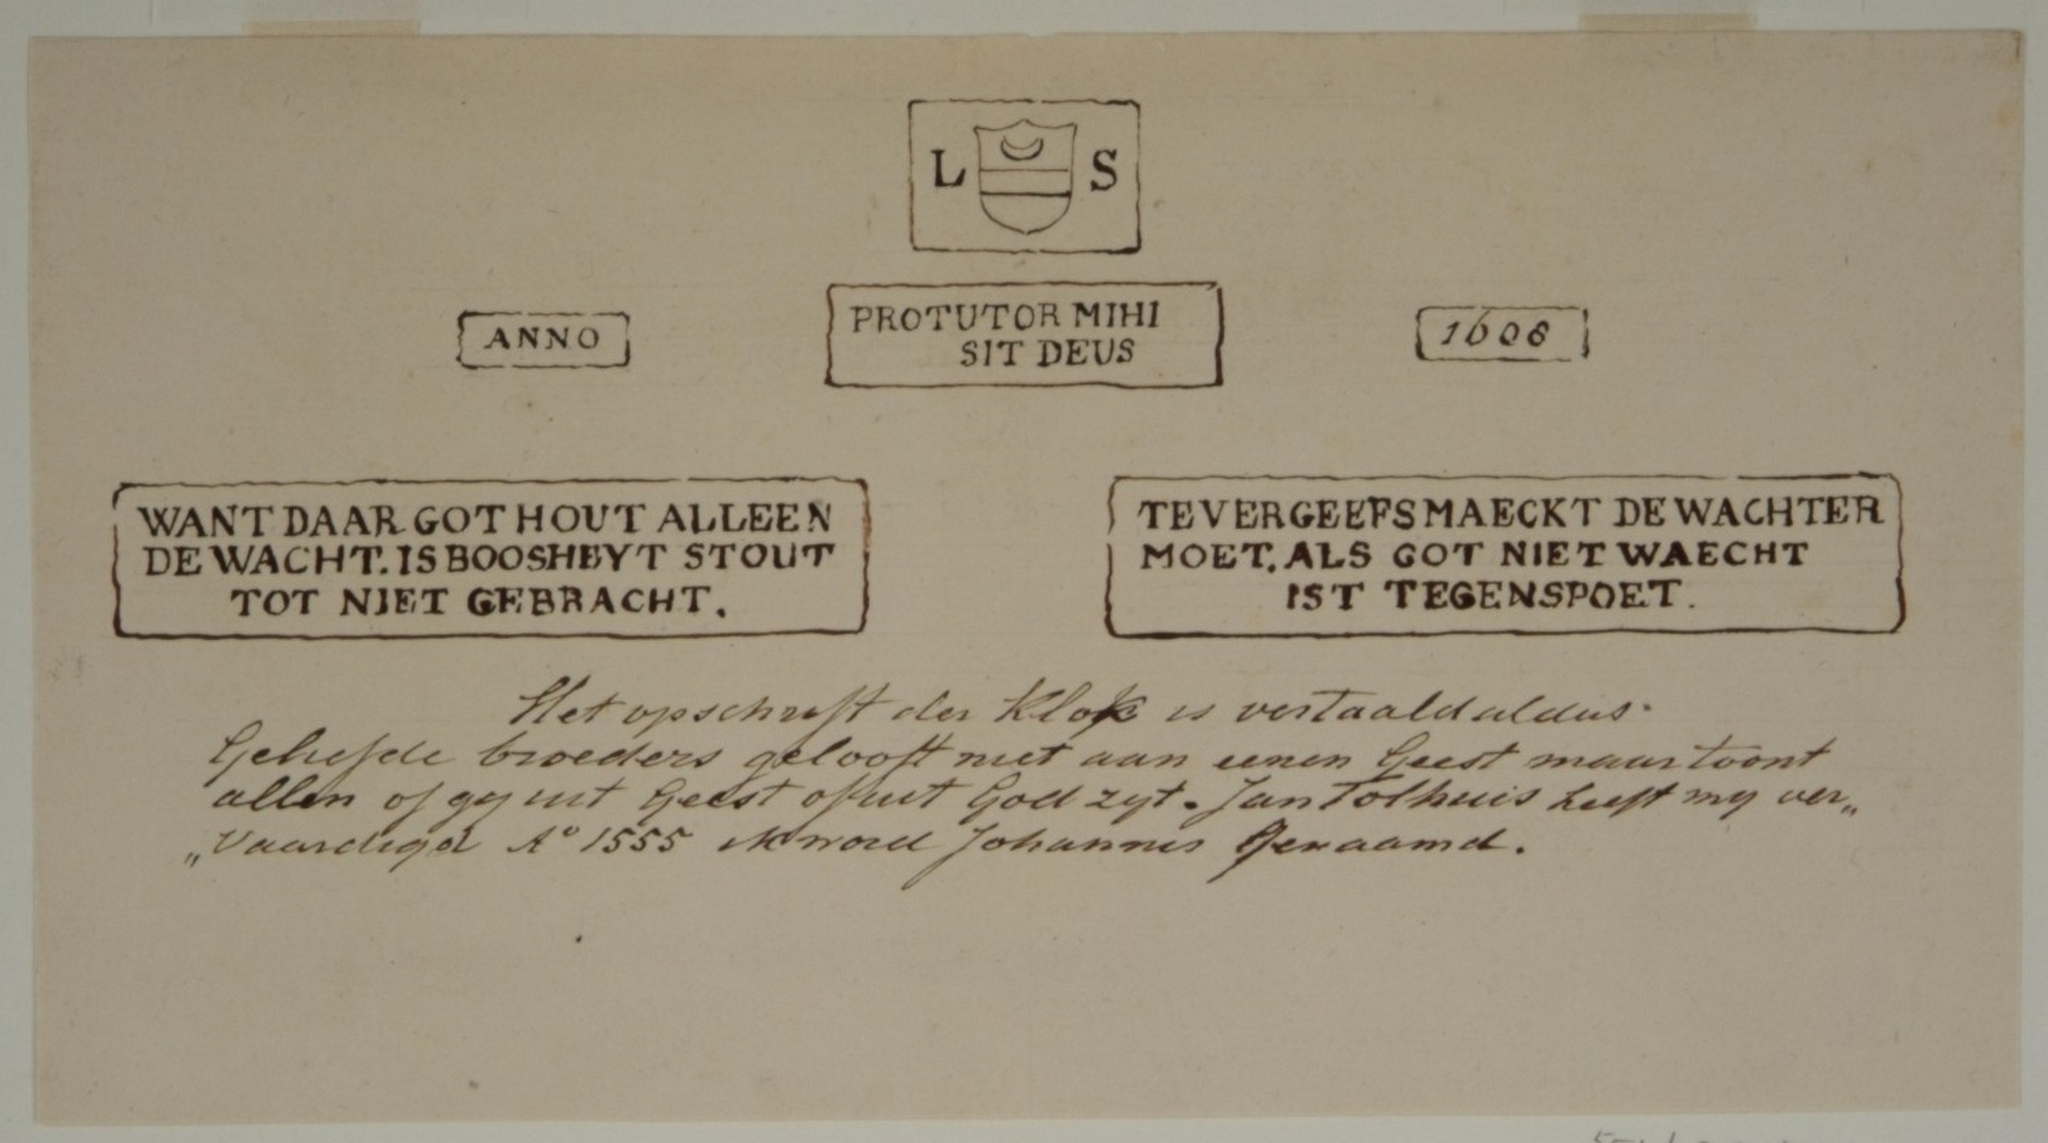 L S
ANNO
PROTUTOR MIHI
SIT DEUS
1608
WANT DAAR GOT HOUT ALLEEN
DE WACHT. IS BOOSHEYT STOUT
TOT NIET GEBRACHT.
TEVERGEEFS MAECKT DE WACHTER
MOET. ALS GOT NIET WAECHT
IST TEGENSPOET.
Het opschrift der Klok is vertaald aldus.
Geliefde broeders gelooft niet aan eenen Geest maar toont
allen of gy uit Geest of uit God zyt. Jan Tolhuis heeft my ver„
„Vaardigd Aº 1555 ik word Johannis Genaamd.